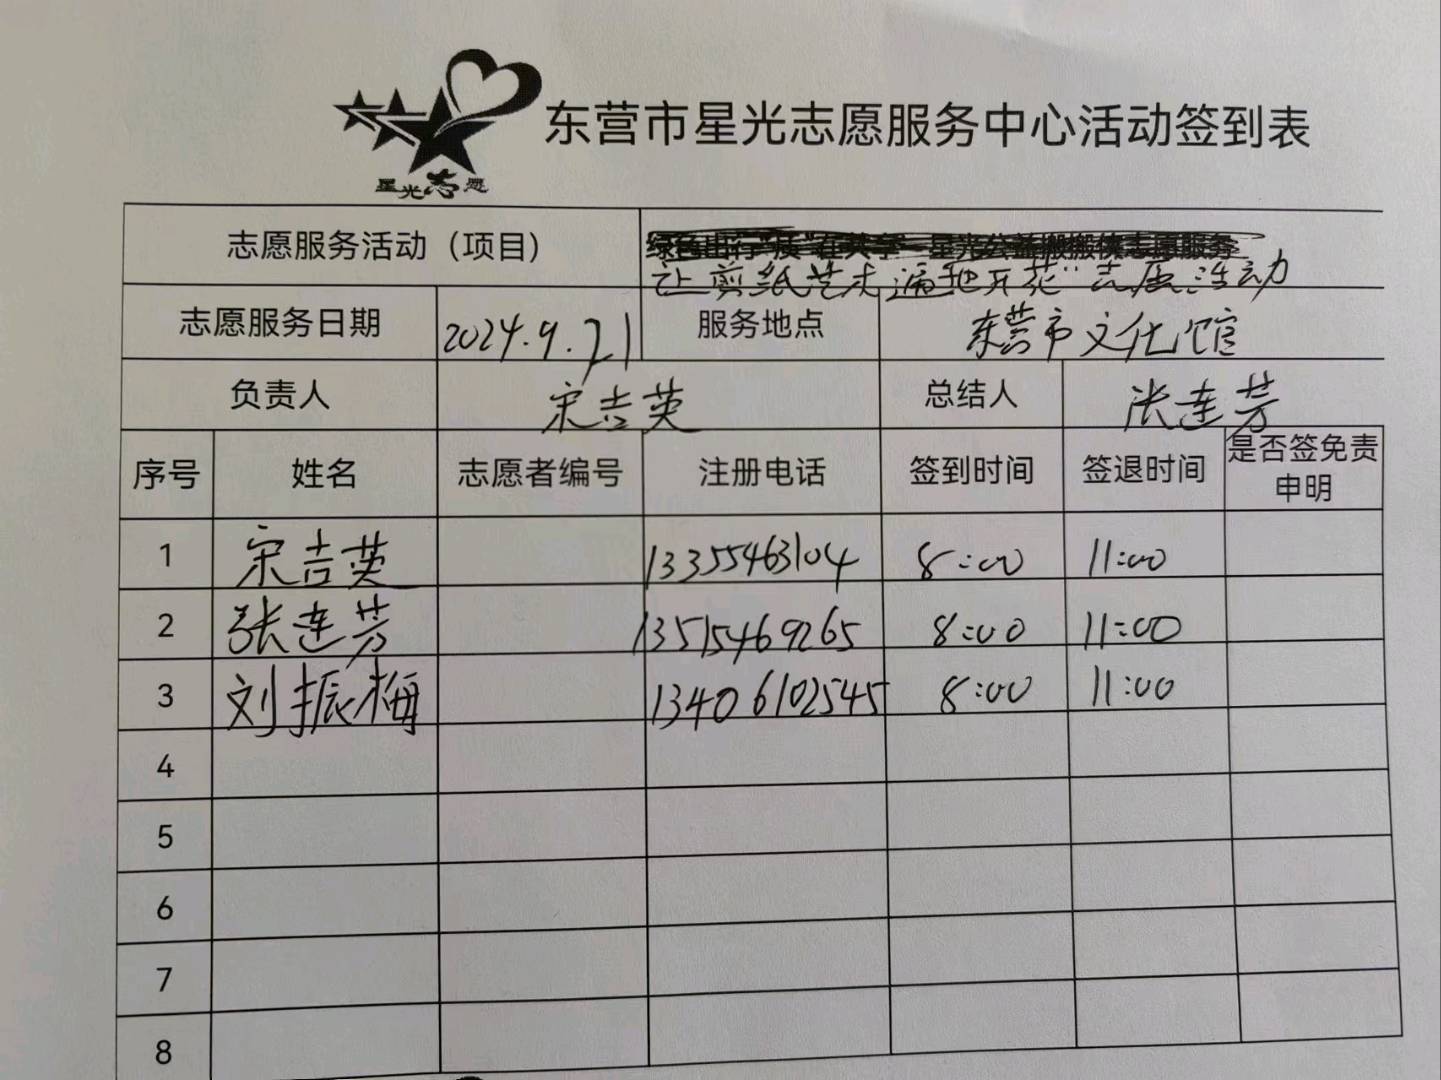 星光志愿
东营市星光志愿服务中心活动签到表
志愿服务活动（项目）
绿色出行"质"在共享 星光公益搬搬侠志愿服务
让剪纸艺术遍地开花"志愿活动
志愿服务日期 2024.9.21 服务地点 东营市文化馆
负责人 宋吉英 总结人 张连芳
序号 姓名 志愿者编号 注册电话 签到时间 签退时间 是否签免责
申明
1 宋吉英 13355463104 8:00 11:00
2 张连芳 13515469265 8:00 11:00
3 刘振梅 13406102545 8:00 11:00
4
5
6
7
8